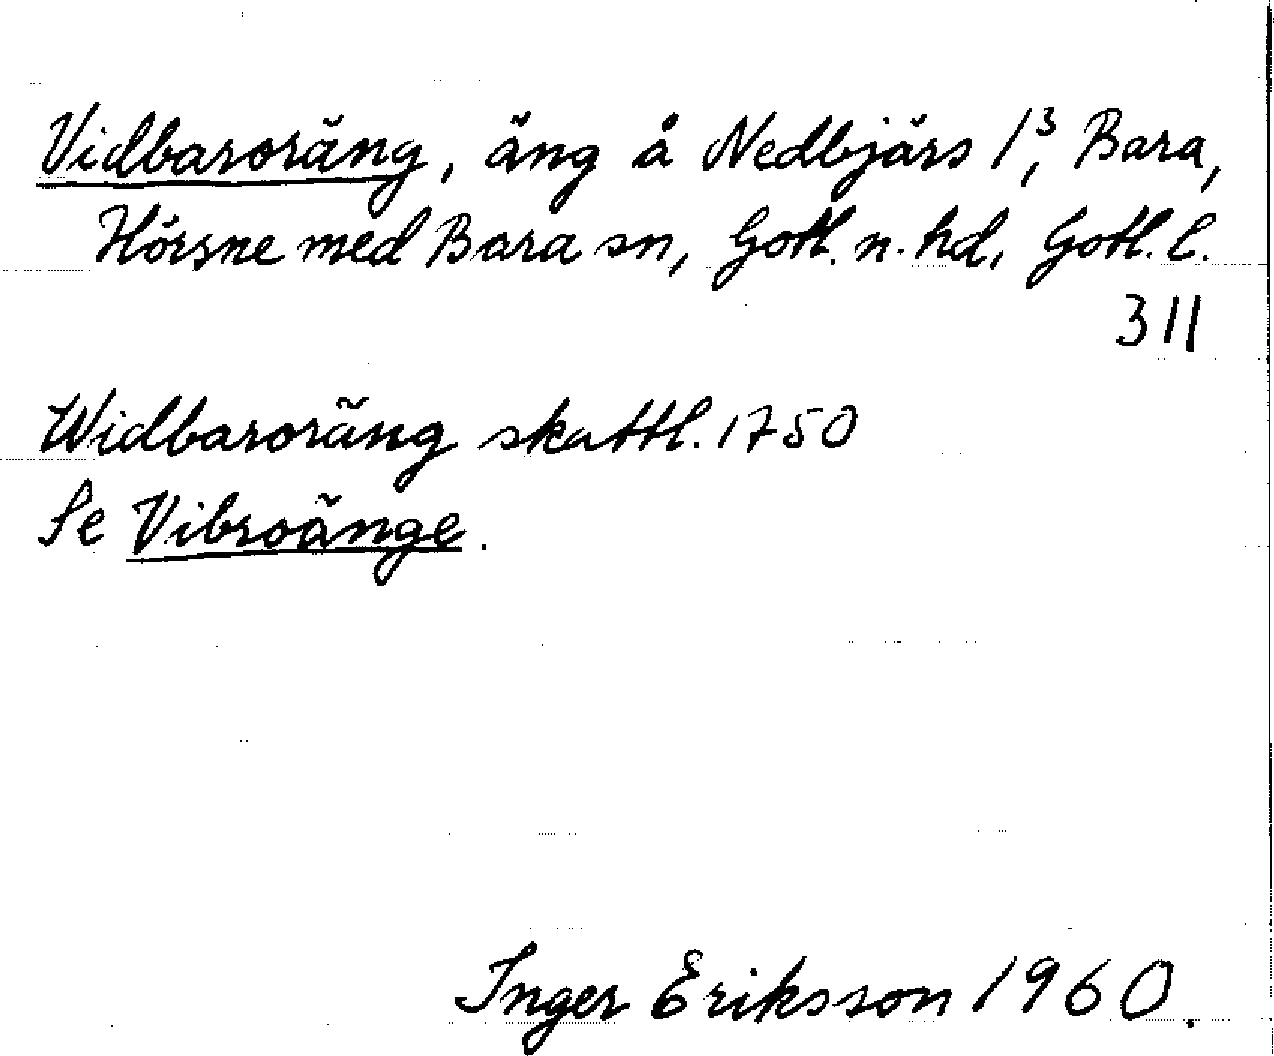 Vidbaroräng, äng å Nedbjärs 1³, Bara,
Hörsne med Bara sn, Gotl. n. hd, Gotl. l.
311
Widbaroräng skattl. 1750
Se Vibroänge.
Inger Eriksson 1960.